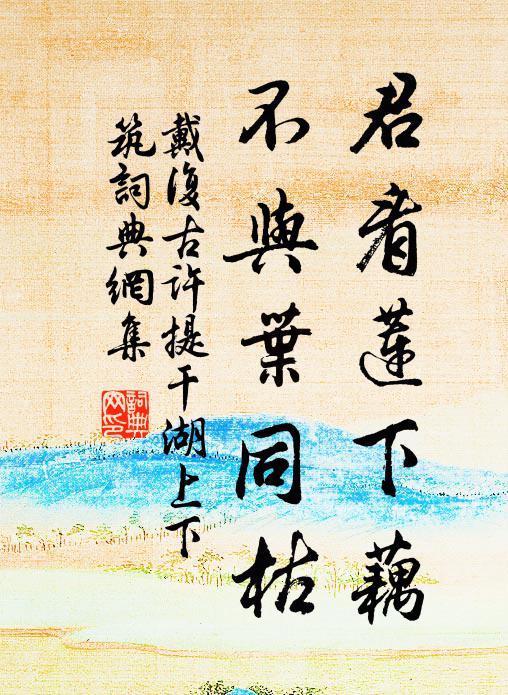 君看蓮下藕
不與葉同枯
戴復古許提干湖上下
筑詞典網集
詞典
网印